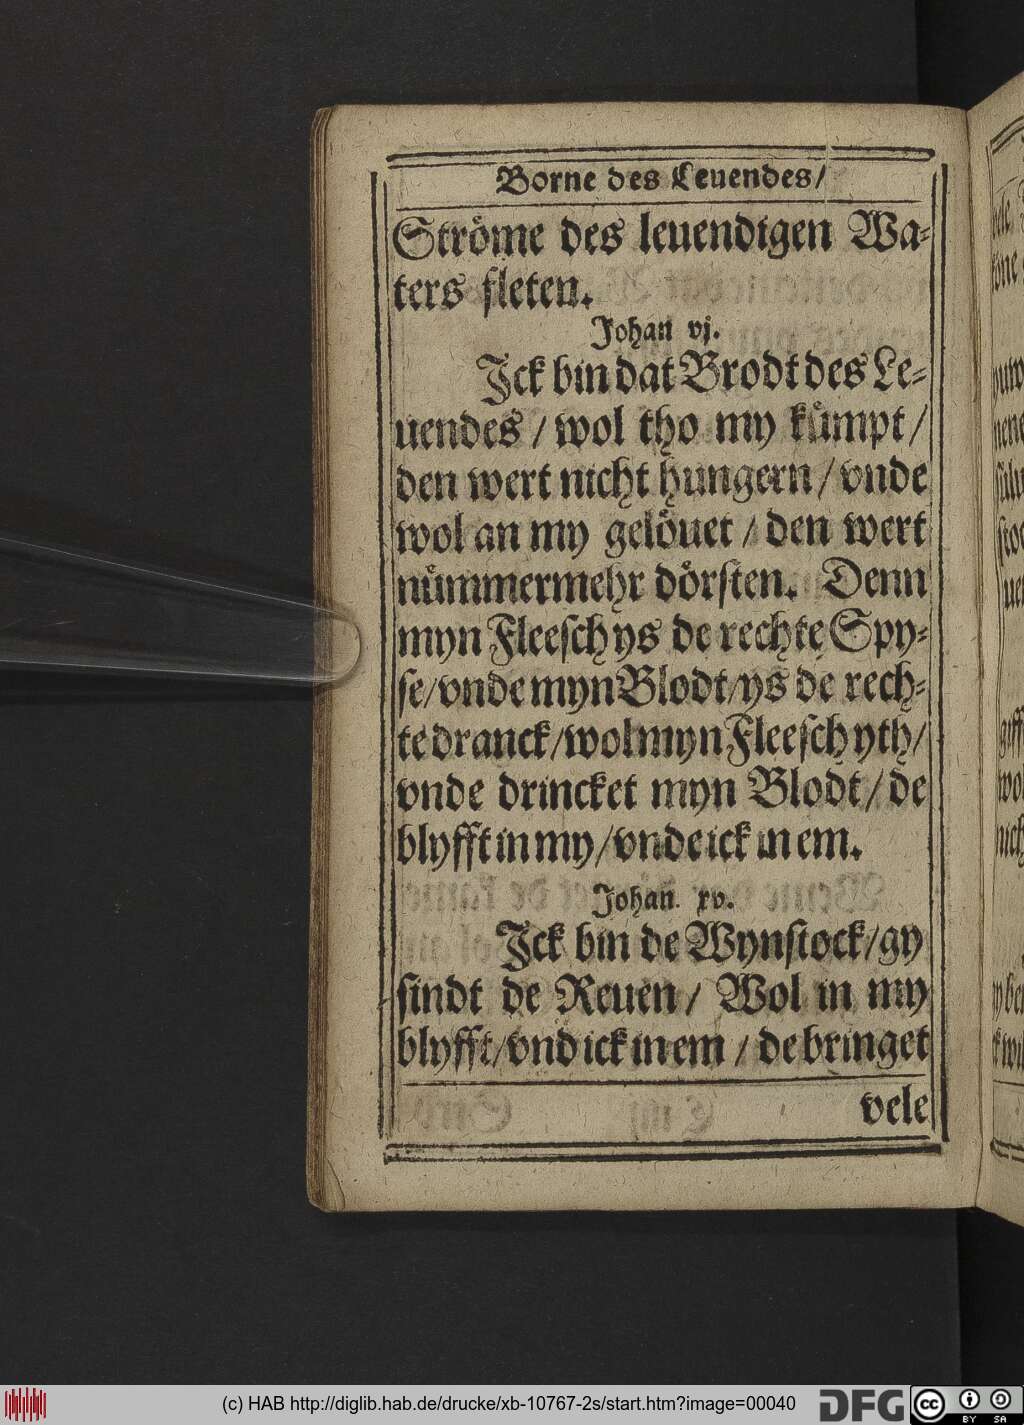 Borne des Leuendes/
Ströme des leuendigen Wa-
ters fleten.
Johan vj.
Jck bin dat Brodt des Le-
uendes / wol tho my kümpt/
den wert nicht hungern / vnde
wol an my gelöuet / den wert
nümmermehr dörsten. Denn
myn Fleesch ys de rechte Spy-
se/vnde myn Blodt/ys de rech-
te dranck/wol myn Fleesch yth/
vnde drincket myn Blodt/ de
blyfft in my/vnde ick in em.
Johan. xv.
Jck bin de Wynstock/gy
sindt de Reuen/ Wol in my
blyfft/vnd ick in em / de bringet
vele
(c) HAB http://diglib.hab.de/drucke/xb-10767-2s/start.htm?image=00040
DFG
cc BY SA